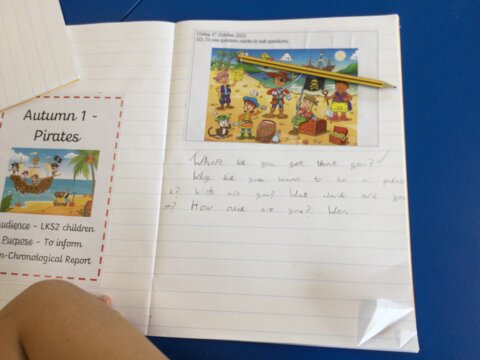 Autumn 1 -
Pirates
udience - LKS2 children
Purpose - To inform
n-Chronological Report
Friday 6th October 2023
LO: To use question marks to ask questions.
Where did you get that you?
Why did you want to be a
c? are you? What are you
? How are you? Wen